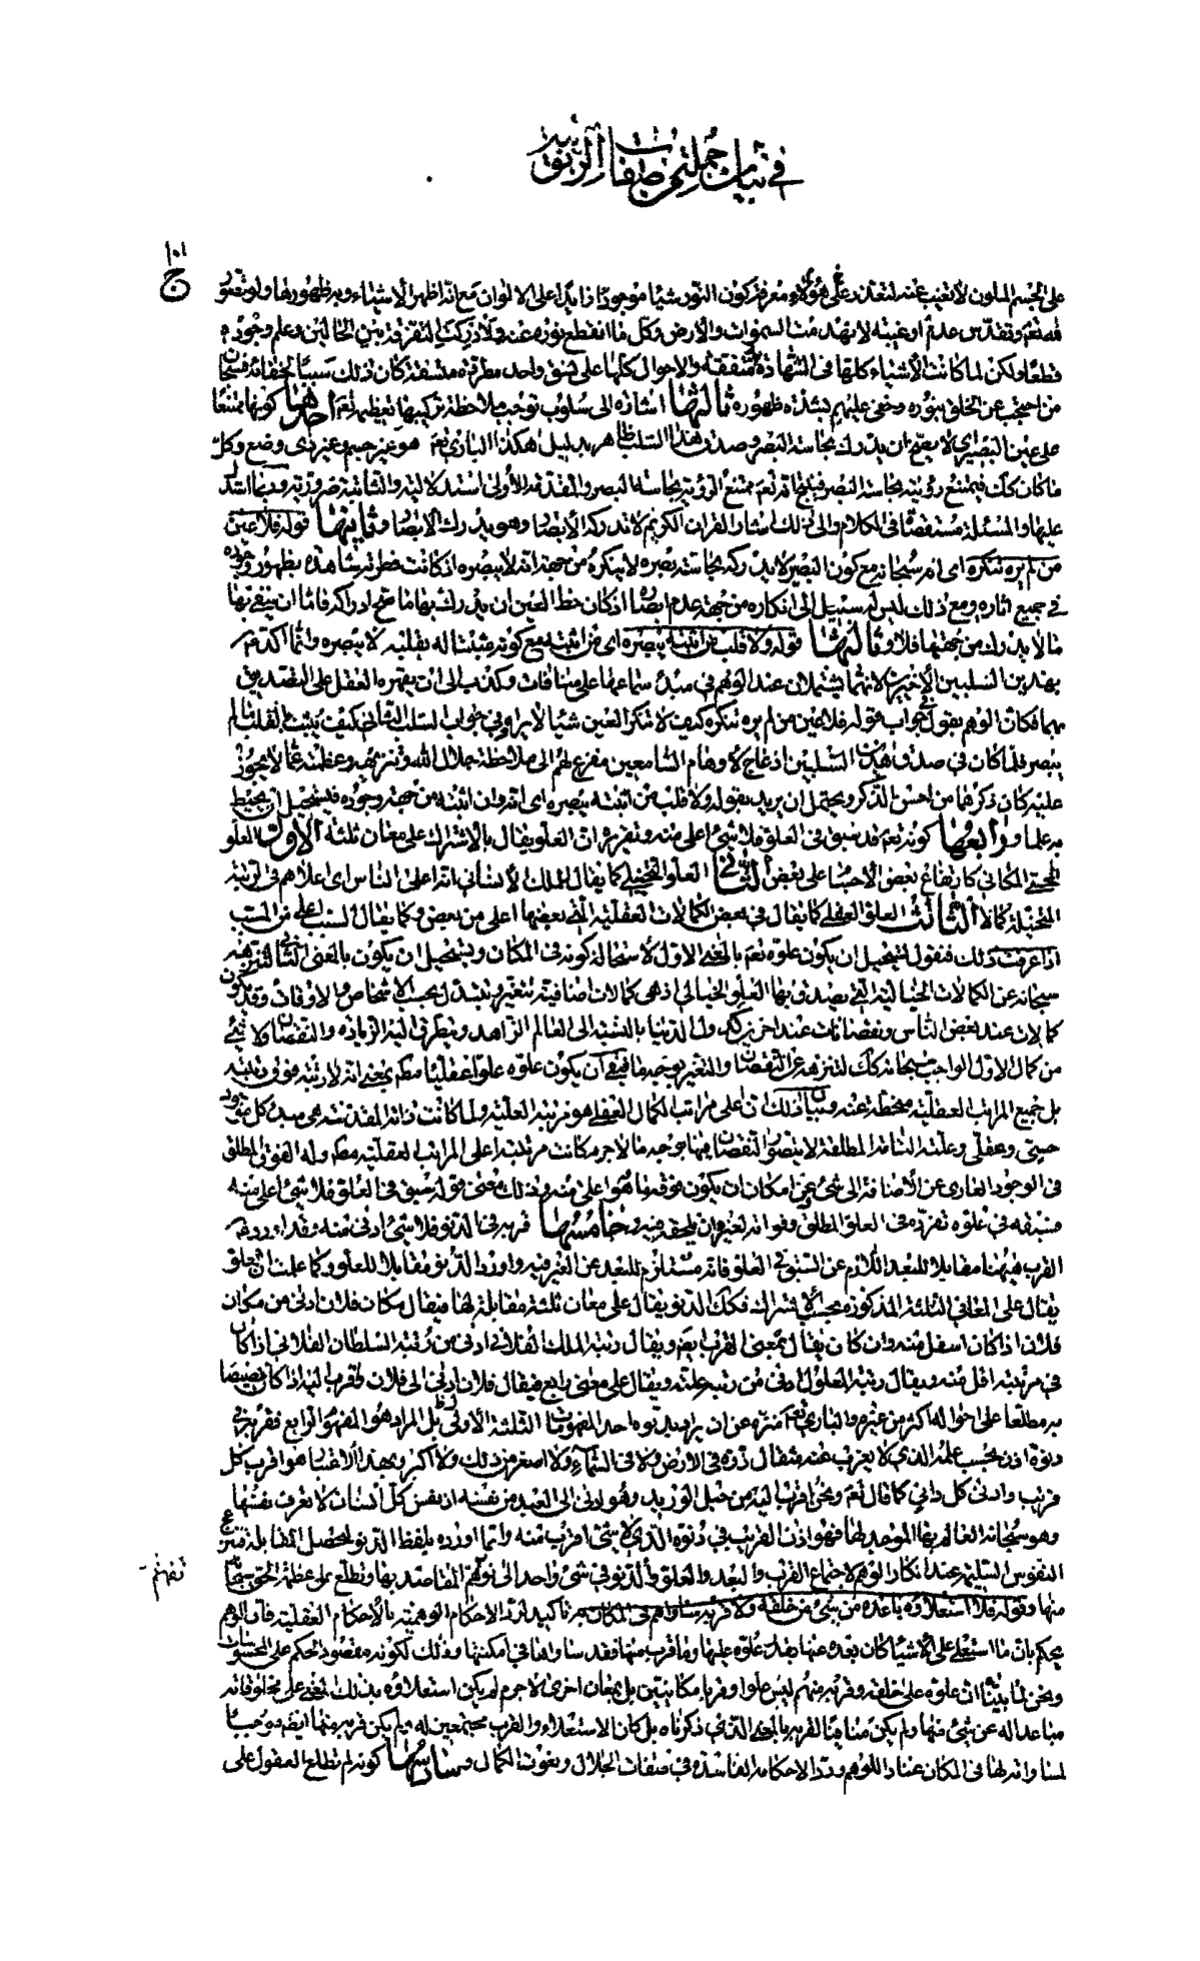 في بيان جملة من صفات الربوبية
١٠١
ج
على الجسم الملون لا يغيب عنه لتعذر على هؤلاء معرفة كون النور شيئا موجودا زايدا على الالوان مع انه اظهر الاشياء وبه ظهورها ولو تصور
لله تعالى وتقدس عدم او غيبة لانهدمت السموات والارض وكل ما انقطع نوره عنه ولادركت التفرقة بين الحالتين وعلم وجوده
قطعا ولكن لما كانت الاشياء كلها في الشهادة متفقة والاحوال كلها على نسق واحد مطردة متسقة كان ذلك سببا لخفائه فسبحان
من احتجب عن الخلق بنوره وخفى عليهم بشدة ظهوره ثالثها اشارة الى سلوب توجب ملاحظة تركيبها تعظيمه تعم احدها كونها ممتنعا
على عين البصير اى لا يصح ان يدرك بحاسة البصر وصدق هذا السلب ظاهر بدليل هكذا البارى تعم هو غير جسم وغير ذى وضع وكل
ما كان كك فيمتنع رؤيته بحاسة البصر فينتج انه تعم ممتنع الرؤية بحاسة البصر والمقدمة الأولى استدلالية والثانية ضرورية وربما استدل
عليها والمسئلة مستقصاة في الكلام والى ذلك اشار القران الكريم لا تدركه الأبصار وهو يدرك الأبصار وثانيها قوله فلا عين
من لم يره تنكره اى انه سبحانه مع كون البصير لا يدركه بحاسة بصره لا ينكره من جهة انه لا يبصره اذ كانت فطرته شاهدة بظهور وجوده
في جميع اثاره ومع ذلك ليس له سبيل الى انكاره من جهة عدم ابصاره اذ كان حظ العين ان يدرك بها ما صح ادراكه فاما ان ينفى بها
ما لا يدرك من جهتها فلا وثالثها قوله ولا قلب من اثبته يبصره اى من اثبته مع كونه مثبتا له بقلبه لا يبصره وانما اكد تعم
بهذين السلبين الأخيرين لانهما يشتملان عند الوهم في مبدء سماعها على منافات وكذب الى ان يقهره العقل على التصديق
بهما فكان الوهم يقول في جواب قوله فلا عين من لم يره تنكره كيف لا تنكر العين شيئا لا تراه وفي جواب السلب الثاني كيف يثبت القلب ما لم
يبصر فلما كان في صدق هذين السلبين ازعاج لأوهام السامعين مفزع لهم الى ملاحظة جلال الله وتنزيهه وعظمته عما لا يجوز
عليه كان ذكرهما من احسن الذكر ويحتمل ان يريد بقوله ولا قلب من اثبته يبصره اى انه وان اثبته من جهة وجوده فيستحيل ان يحيط
به علما ورابعها كونه تعم قد سبق في العلو فلا شئ اعلى منه وتقريره ان العلو يقال بالاشتراك على معان ثلثة الاول العلو
الحسى المكاني كارتفاع بعض الأجسام على بعض الثانى العلو التخيلى كما يقال للملك الانسانى انه اعلى الناس اى اعلاهم في الرتبة
المتخيلة كمالا الثالث العلو العقلى كما يقال في بعض الكمالات العقلية التى بعضها اعلى من بعض وكما يقال السبب اعلى من المسبب
اذا عرفت ذلك فنقول يستحيل ان يكون علوه تعم بالمعنى الاول لاستحالة كونه في المكان ويستحيل ان يكون بالمعنى الثانى لتنزهه
سبحانه عن الكمالات الخيالية التى يصدق بها العلو الخيالى اذ هى كمالات اضافية تتغير وتتبدل بحسب الاشخاص والاوقات وقد يكون
كمالات عند بعض الناس ونقصانات عند اخرين كدول الدنيا بالنسبة الى العالم الزاهد ويتطرق اليه الزيادة والنقصان ولا شئ
من كمال الاول الواجب سبحانه كك لتنزهه عن النقصان والتغير بوجه ما فبقى ان يكون علوه علوا عقليا مطلقا بمعنى انه لا رتبة فوق رتبته
بل جميع المراتب العقلية منحطة عنه وبيان ذلك ان اعلى مراتب الكمال العقلى هو مرتبة العلية ولما كانت ذاته المقدسة هى مبدء كل موجود
حسى وعقلى وعلته التامة المطلقة لا يتصور النقصان فيها بوجه ما لاجرم كانت مرتبته اعلى المراتب العقلية مطلقا وله الفوق المطلق
في الوجود العارى عن الأضافة الى شئ وعن امكان ان يكون فوقه ما هو اعلى منه وذلك معنى قوله سبق في العلو فلا شئ اعلى منه
فسبقه في علوه تفرده في العلو المطلق وفواته لغيره ان يلحقه فيه وخامسها قربه في الدنو فلا شئ ادنى منه وقد اورد تعم
القرب ههنا مقابلا للبعد اللازم عن السبق في العلو فانه مستلزم للبعد عن الغير فيه واورد الدنو مقابلا للعلو وكما علمت ان العلو
يقال على المعانى الثلثة المذكورة بحسب الأشتراك فكك الدنو يقال على معان ثلثة مقابلة لها فيقال مكان فلان ادنى من مكان
فلان اذا كان اسفل منه وان كان يقال بمعنى القرب ايضم ويقال رتبة الملك الفلانى ادنى من رتبة السلطان الفلانى اذا كان
في مرتبة اقل منه ويقال رتبة المعلول ادنى من رتبة علته ويقال على معنى رابع فيقال فلان ادنى الى فلان واقرب اليه اذا كان خصيصا
به مطلعا على احواله اكثر من غيره والبارى تعم منزه عن ان يراد بدنوه احد المفهومات الثلثة الأولى بل المراد هو المفهوم الرابع فقربه في
دنوه اذن بحسب علمه الذى لا يعزب عنه مثقال ذرة في الارض ولا في السماء ولا اصغر من ذلك ولا اكبر وبهذا الاعتبار هو اقرب كل
قريب وادنى كل دانى كما قال تعم ونحن اقرب اليه من حبل الوريد وهو ادنى الى العبد من نفسه اذ نفس كل انسان لا تعرف نفسها
وهو سبحانه العالم بها الموجد لها فهو اذن القريب في دنوه الذى لا شئ اقرب منه وانما اورده بلفظ الدنو لتحصل المقابلة فتنزع
النفوس السليمة عند انكار الوهم لاجتماع القرب والبعد والعلو والدنو في شئ واحد الى توهم المقاصد بها وتطلع على عظمة الحق سبحانه
تفهم
منها وقوله فلا استعلاؤه باعده من شئ من خلقه ولا قربه ساواهم في المكان به تاكيد لرد الاحكام الوهمية بالأحكام العقلية فان الوهم
يحكم بان ما استعلى على الأشياء كان بعده عنها بقدر علوه عليها وما قرب منها فقد ساواها في امكنتها وذلك لكونه مقصور الحكم على المحسوسات
ونحن لما بينا ان علوه على خلقه وقربه منهم ليس علوا وقربا مكانيين بل بمعان اخرى لاجرم لم يكن استعلاؤه بذلك المعنى على مخلوقاته
مباعدا له عن شئ منها ولم يكن منافيا لقربه بالمعنى الذى ذكرناه بل كان الاستعلاء والقرب مجتمعين له ولم يكن قربه منها ايضم موجبا
لمساواته لها في المكان عنادا للوهم وردا لاحكامه الفاسدة في صفات الجلال ونعوت الكمال وسادسها كونه لم تطلع العقول على